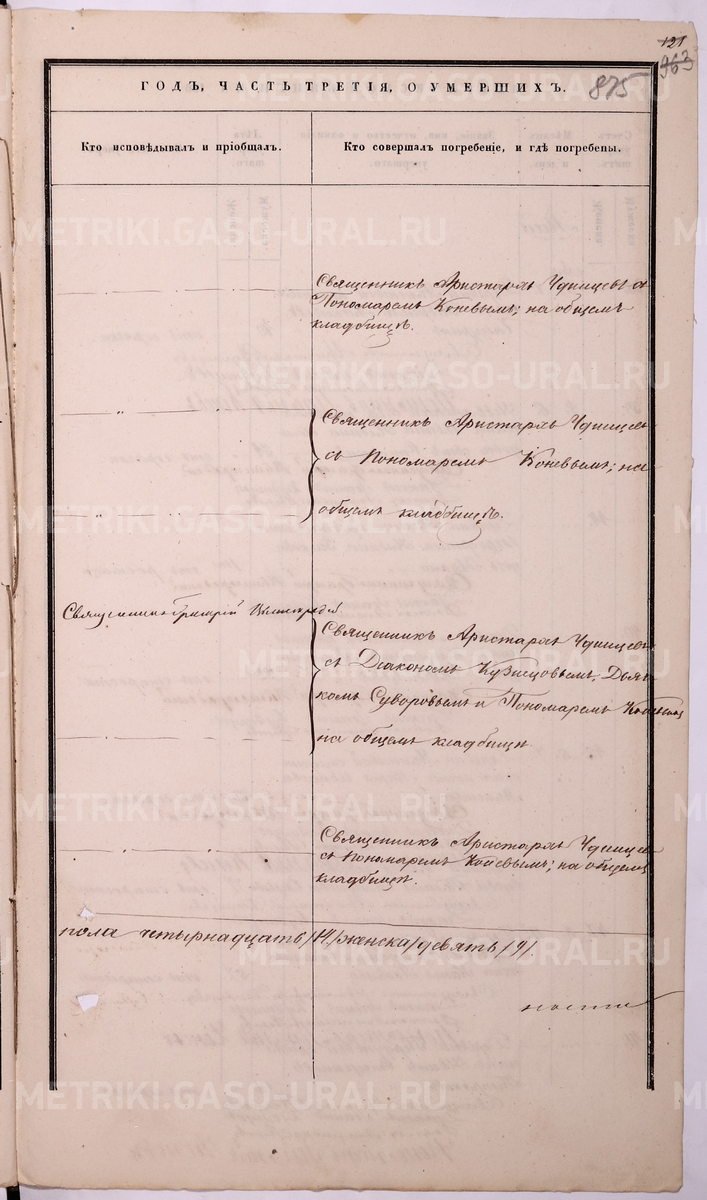 121
963
875
ГОДЪ, ЧАСТЬ ТРЕТІЯ, О УМЕРШИХЪ.
Кто исповѣдывалъ и пріобщалъ.
Кто совершалъ погребеніе, и гдѣ погребены.
Священникъ Аристархъ с
Пономаремъ Коневымъ; на общемъ
кладбищѣ.
Священникъ Аристархъ
съ Пономаремъ Коневымъ; на
общемъ кладбищѣ.
Священникъ Григорій
Священникъ Аристархъ
съ Діакономъ Кузнецовымъ, Дьяч
комъ Суворовымъ и Пономаремъ Коневымъ
на общемъ кладбищѣ
Священникъ Аристархъ
съ Пономаремъ Коневымъ; на общемъ
кладбищѣ.
пола четырнадцать /14/ женска /девять /9/.
METRIKI.GASO-URAL.RU